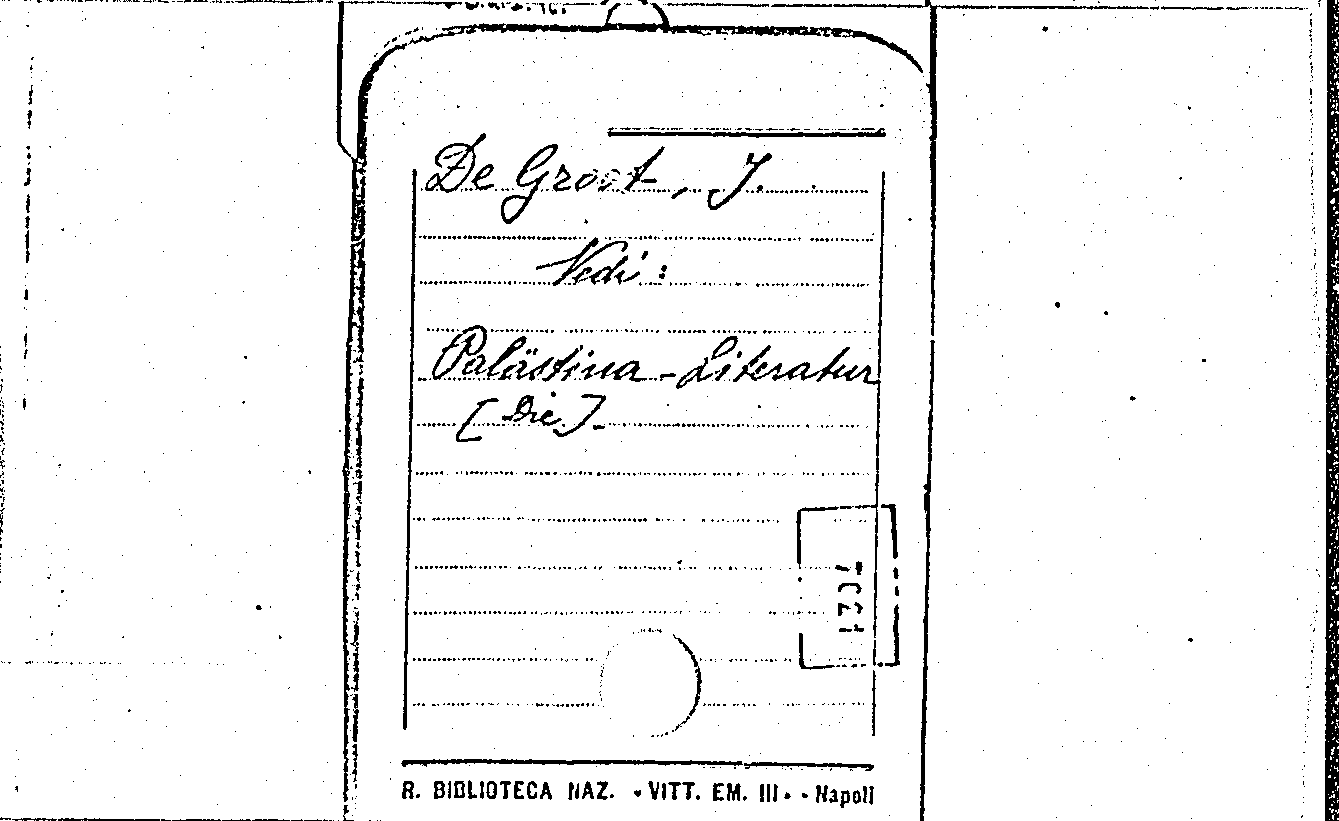 De Groot, J.
Vedi:
Palästina-Literatur
[Die].
R. BIBLIOTECA NAZ. «VITT. EM. III» - Napoli